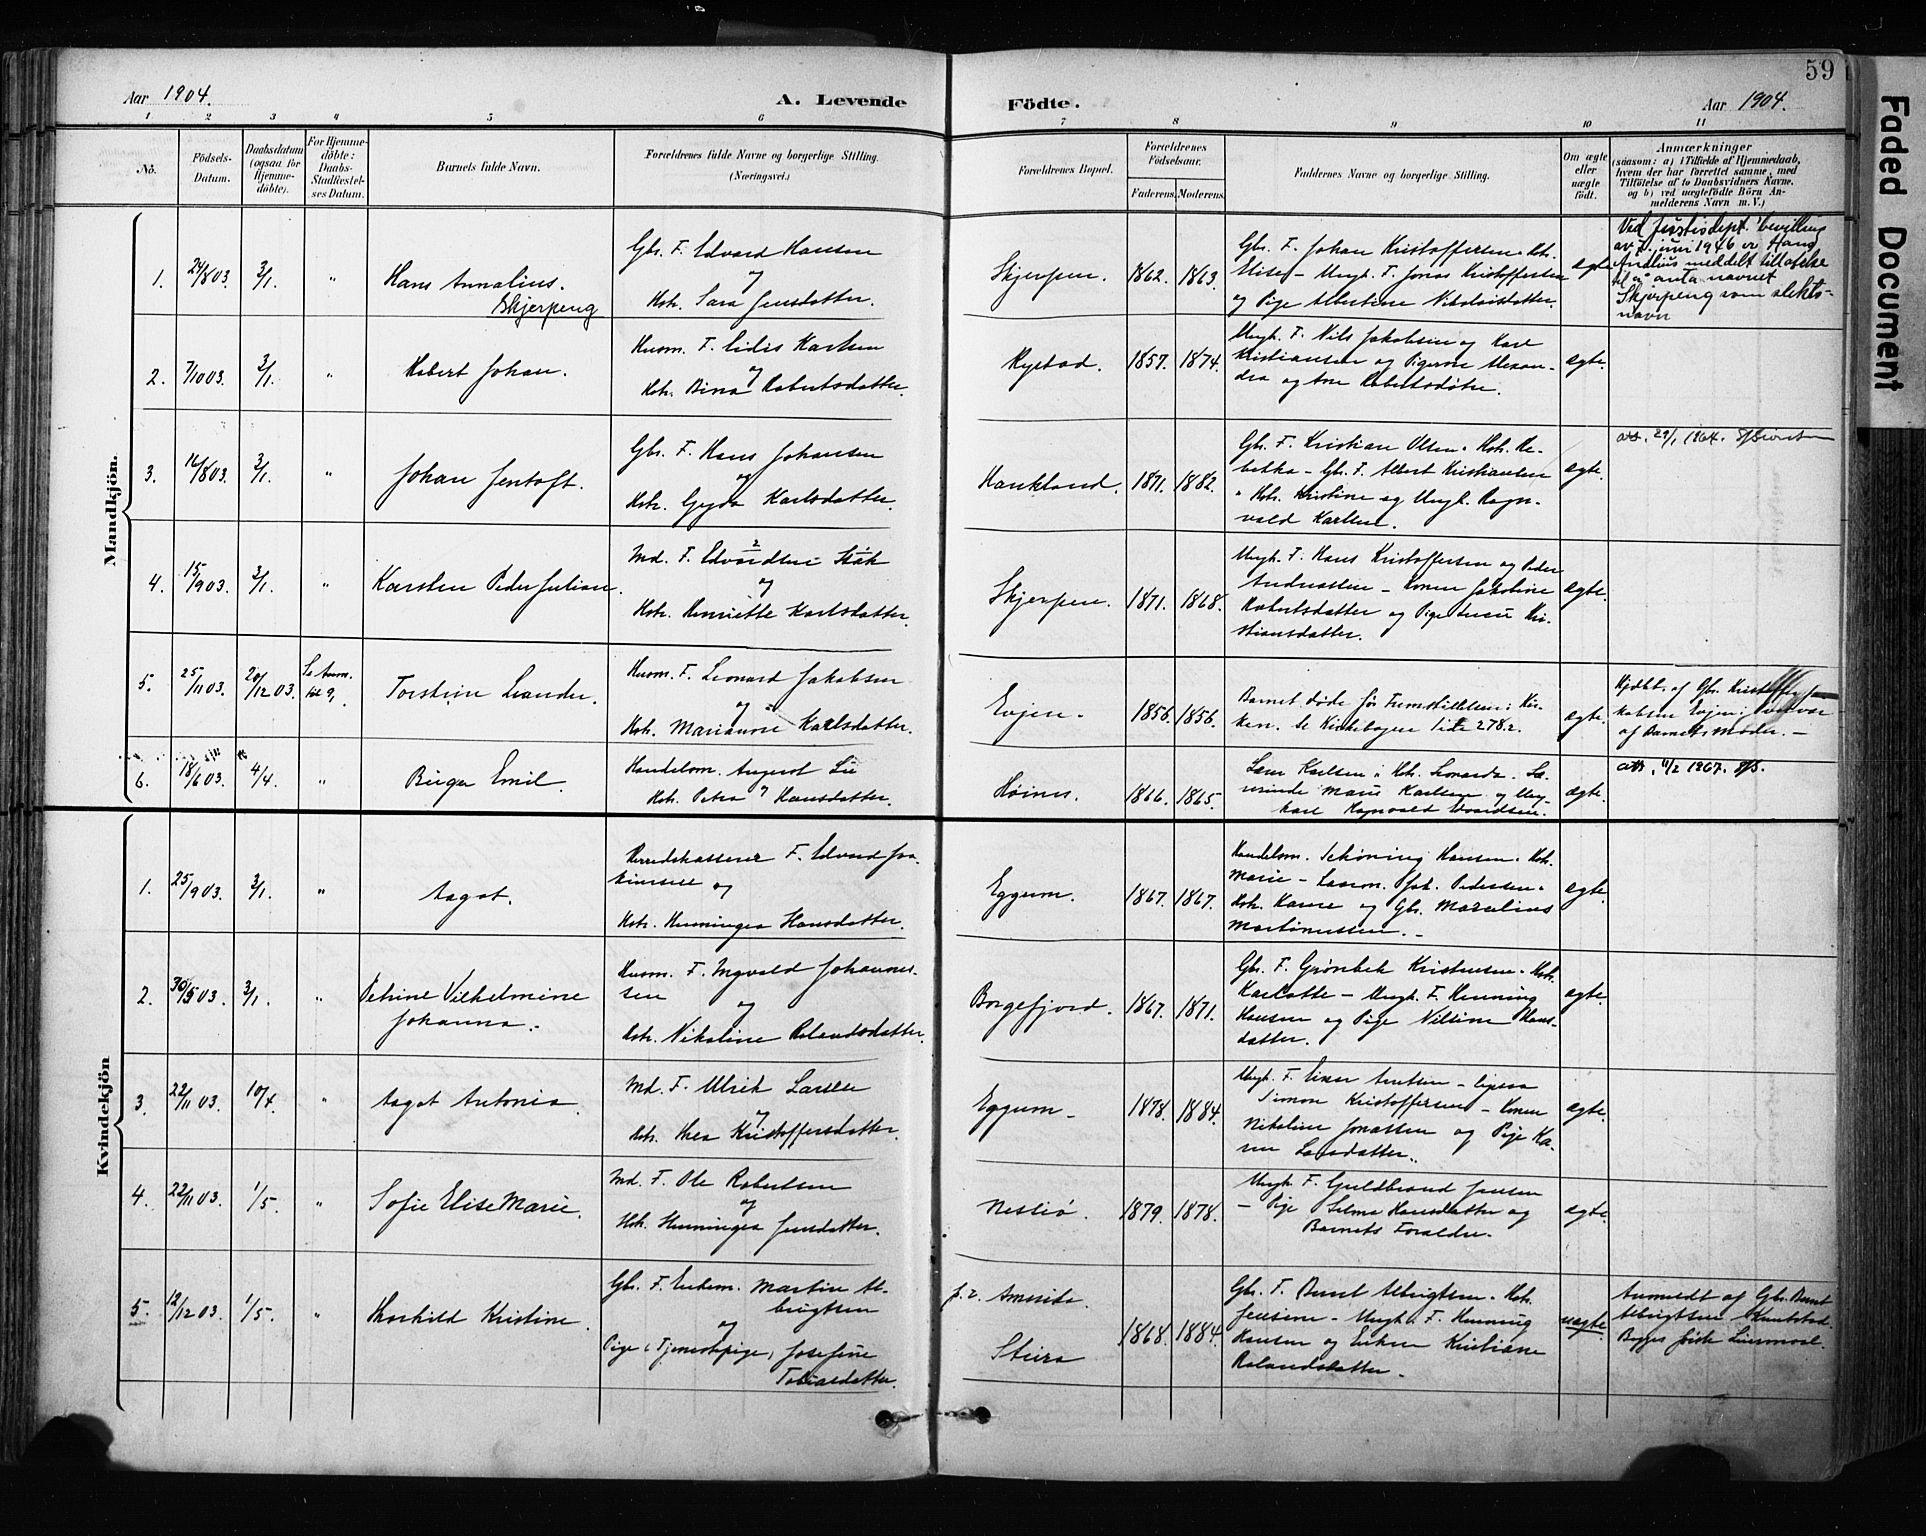 59
Faded Document
Aar 1904.
A. Levende Födte.
Aar 1904.
1 2 3 4 5 6 7 8 9 10 11
No.
Födsels-Datum.
Daabsdatum (ogsaa for Hjemmedöbte).
For Hjemmedöbte: Daabs-Stadfæstelses Datum.
Barnets fulde Navn.
Forældrenes fulde Navne og borgerlige Stilling.
(Næringsvei.)
Forældrenes Bopæl.
Forældrenes Födselsaar.
Faderens. Moderens.
Faddernes Navne og borgerlige Stilling.
Om ægte eller uægte födt.
Anmærkninger
(saasom: a) i Tilfælde af Hjemmedaab, hvem der har forrettet samme, med Tilföielse af to Daabsvidners Navne, og b) ved uægtefödte Börn Anmelderens Navn m. V.)
Mandkjön.
1. 24/8 03. 3/1. " Hans Annalius. Skjerpeng
Gbr. F. Edvard Hansen
og
Hst. Sara Jensdatter.
Skjerpen. 1862. 1863.
Gbr. F. Johan Kristoffersen. Hst.
Elise – Ungk. F. Jonas Kristoffersen
og Pige Albertine Nikolaisdatter.
ægte
Ved justisdept. bevilling
av 7. juni 1946 er Hans
Andlius meddelt tillatelse
til å anta navnet
Skjerpeng som slekts-
navn
2. 7/10 03. 3/1. " Robert Johan.
Husm. F. Eidis Karlsen
og
Hst. Bina Robertsdatter.
Rystad. 1857. 1874.
Ungk. F. Nils Jakobsen og Karl
Kristiansen og Pigerne Alexan-
dra og Ane Robertsdøtre.
ægte.
3. 16/8 03. 3/1. " Johan Jentoft.
Gbr. F. Hans Johansen
og
Hst. Gyda Karlsdatter.
Haukland. 1871. 1882.
Gbr. F. Kristian Olsen. Hst. Re-
bekka – Gbr. F. Albert Kristiansen
" Hst. Kristine og Ungk. Ragn-
vald Karlsen.
ægte.
att. 29/1 1964.
4. 15/9 03. 3/1. " Karsten Peder Julian.
Md. F. Edvardsen Stök
og
Hst. Henriette Karlsdatter.
Skjerpen. 1871. 1868.
Ungk. F. Hans Kristoffersen og Peder
Andreassen – Konen Jakobine
Robertsdatter og Pige Kri-
stiansdatter.
ægte.
5. 25/11 03. 20/12 03. Se Anm. till 9, Torstein Leander.
Husm. F. Leonard Jakobsen
og
Hst. Marianne Karlsdatter.
Evjen. 1856. 1856.
Barnet døde før Fremstillelsen i Kir-
ken. Se Kirkebogen Side 278.
ægte.
Hjdbt. af Gbr. Kristoffer Ja-
kobsen Evjen;
af Barnets Moder. –
6. 18/6 03. 4/4. " Birger Emil.
Handelsm. August Lie
og
Hst. Petra Hansdatter.
Höines. 1866. 1865.
Lars Karlsen. Hst. Leonarda. Se-
verinde Marie Karlsen og Ung-
karl Ragnvald Edvardsen.
ægte.
att. 11/2 1967.
Kvindekjön
1. 25/9 03. 3/1. " Aagot.
Herredskasserer F. Edvard Joa-
kimsen og
Hst. Henningea Hansdatter.
Eggum. 1867. 1867.
Handelsm. Schøning Hansen. Hst.
Marie – Joh. Pedersen.
Hst. Hanne og Gbr. Marelius
Martinussen. –
ægte.
2. 30/5 03. 3/1. " Petrine Vilhelmine
Johanna.
Husm. F. Ingvald Johannes-
sen
og
Hst. Nikoline Rolandsdatter.
Borgefjord. 1867. 1871.
Gbr. F. Grønbek Kristensen. Hst.
Karlotte – Ungk. F. Henning
Hansen og Pige Nilsine Hans-
datter.
ægte.
3. 22/11 03. 10/4. " Aagot Antonia.
Md. F. Ulrik Larsen
og
Hst. Thea Kristoffersdatter.
Eggum – 1878. 1884.
Ungk. F. Einar Arntsen – ligesaa
Simon Kristoffersen – Konen
Nikoline Jonassen og Pige Ka-
ren Larsdatter.
ægte.
4. 22/11 03. 1/5. " Sofie Elise Marie.
Md. F. Ole Robertsen
og
Hst. Henningea Jensdatter.
Nessiö. 1879. 1878.
Ungk. F. Guldbrand Jensen
– Pige Selma Hansdatter og
Barnets Forældre.
ægte.
5. 12/12 03. 1/5. " Thorhild Kristine.
Gbr. F. Enkem. Martin Al-
brigtsen
og
Pige (Tjenestepige) Josefine
Tobiasdatter.
f. t. Amerika.
Steira
1868. 1884.
Gbr. F. Bernt Albrigtsen. Hst.
Jensine – Ungk. F. Henning
Hansen og Enken Kristiane
Rolandsdatter –
uægte.
Anmeldt af Gbr. Bernt
Albrigtsen Knutstad.
Begges